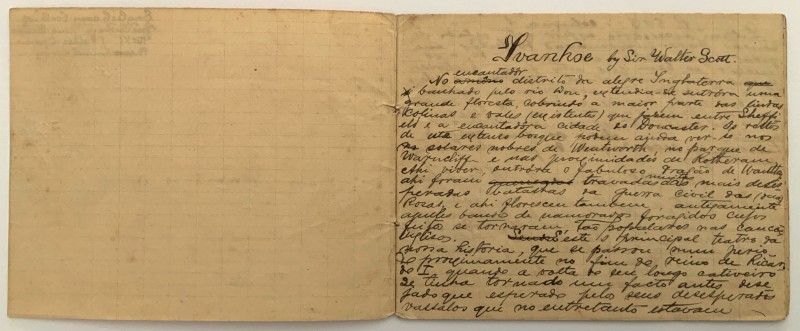 Ivanhoe by Sir Walter Scott.
encantador
No ameno districto da alegre Inglaterra que
é banhado pelo rio Don, extendia-se outrora uma
grande floresta, cobrindo a maior parte das lindas
colinas e vales (existentes) que jazem entre Sheffi
eld e a encantadora cidade de Doncaster. Os restos
de este extenso bosque podem ainda ver-se nos
solares nobres de Wentworth, no parque de
Warncliff e nas proximidades de Rotheram.
Ahi viveu, outrora o fabuloso Dragão de Wantley,
ahi foram travadas muitas das mais deses
peradas batalhas da guerra civil das duas
Rosas, e ahi floresceu tambem, antigamente
aquelle bando de namorados foragidos cujos
feitos se tornaram tão populares nas canções
inglesas. Sendo é este o principal teatro da
nossa historia, que se passou num perio
do proximamente no fim do reino de Ricar
do I, quando a volta do seu longo cativeiro
se tinha tornado um facto antes dese
jado que esperado pelos seus desesperados
vassalos que no entretanto estavam